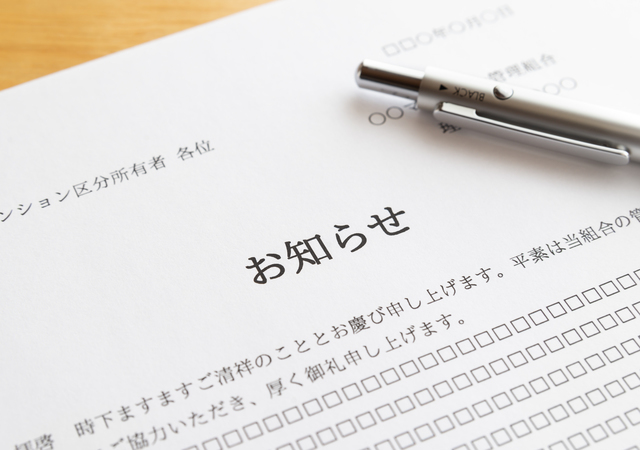 □□○年○月○日
管理組合
○○
○○
理
ンション区分所有者 各位
お知らせ
拝啓 時下ますますご清祥のこととお慶び申し上げます。平素は当組合の管
ご協力いただき、厚く御礼申し上げます。
□□□□□□□□□□□□□□□□□□□□
□□□□□□□□□□□□□□□□□□□
□□□□□□□□□□□□□
□□□□□□□
BLACK